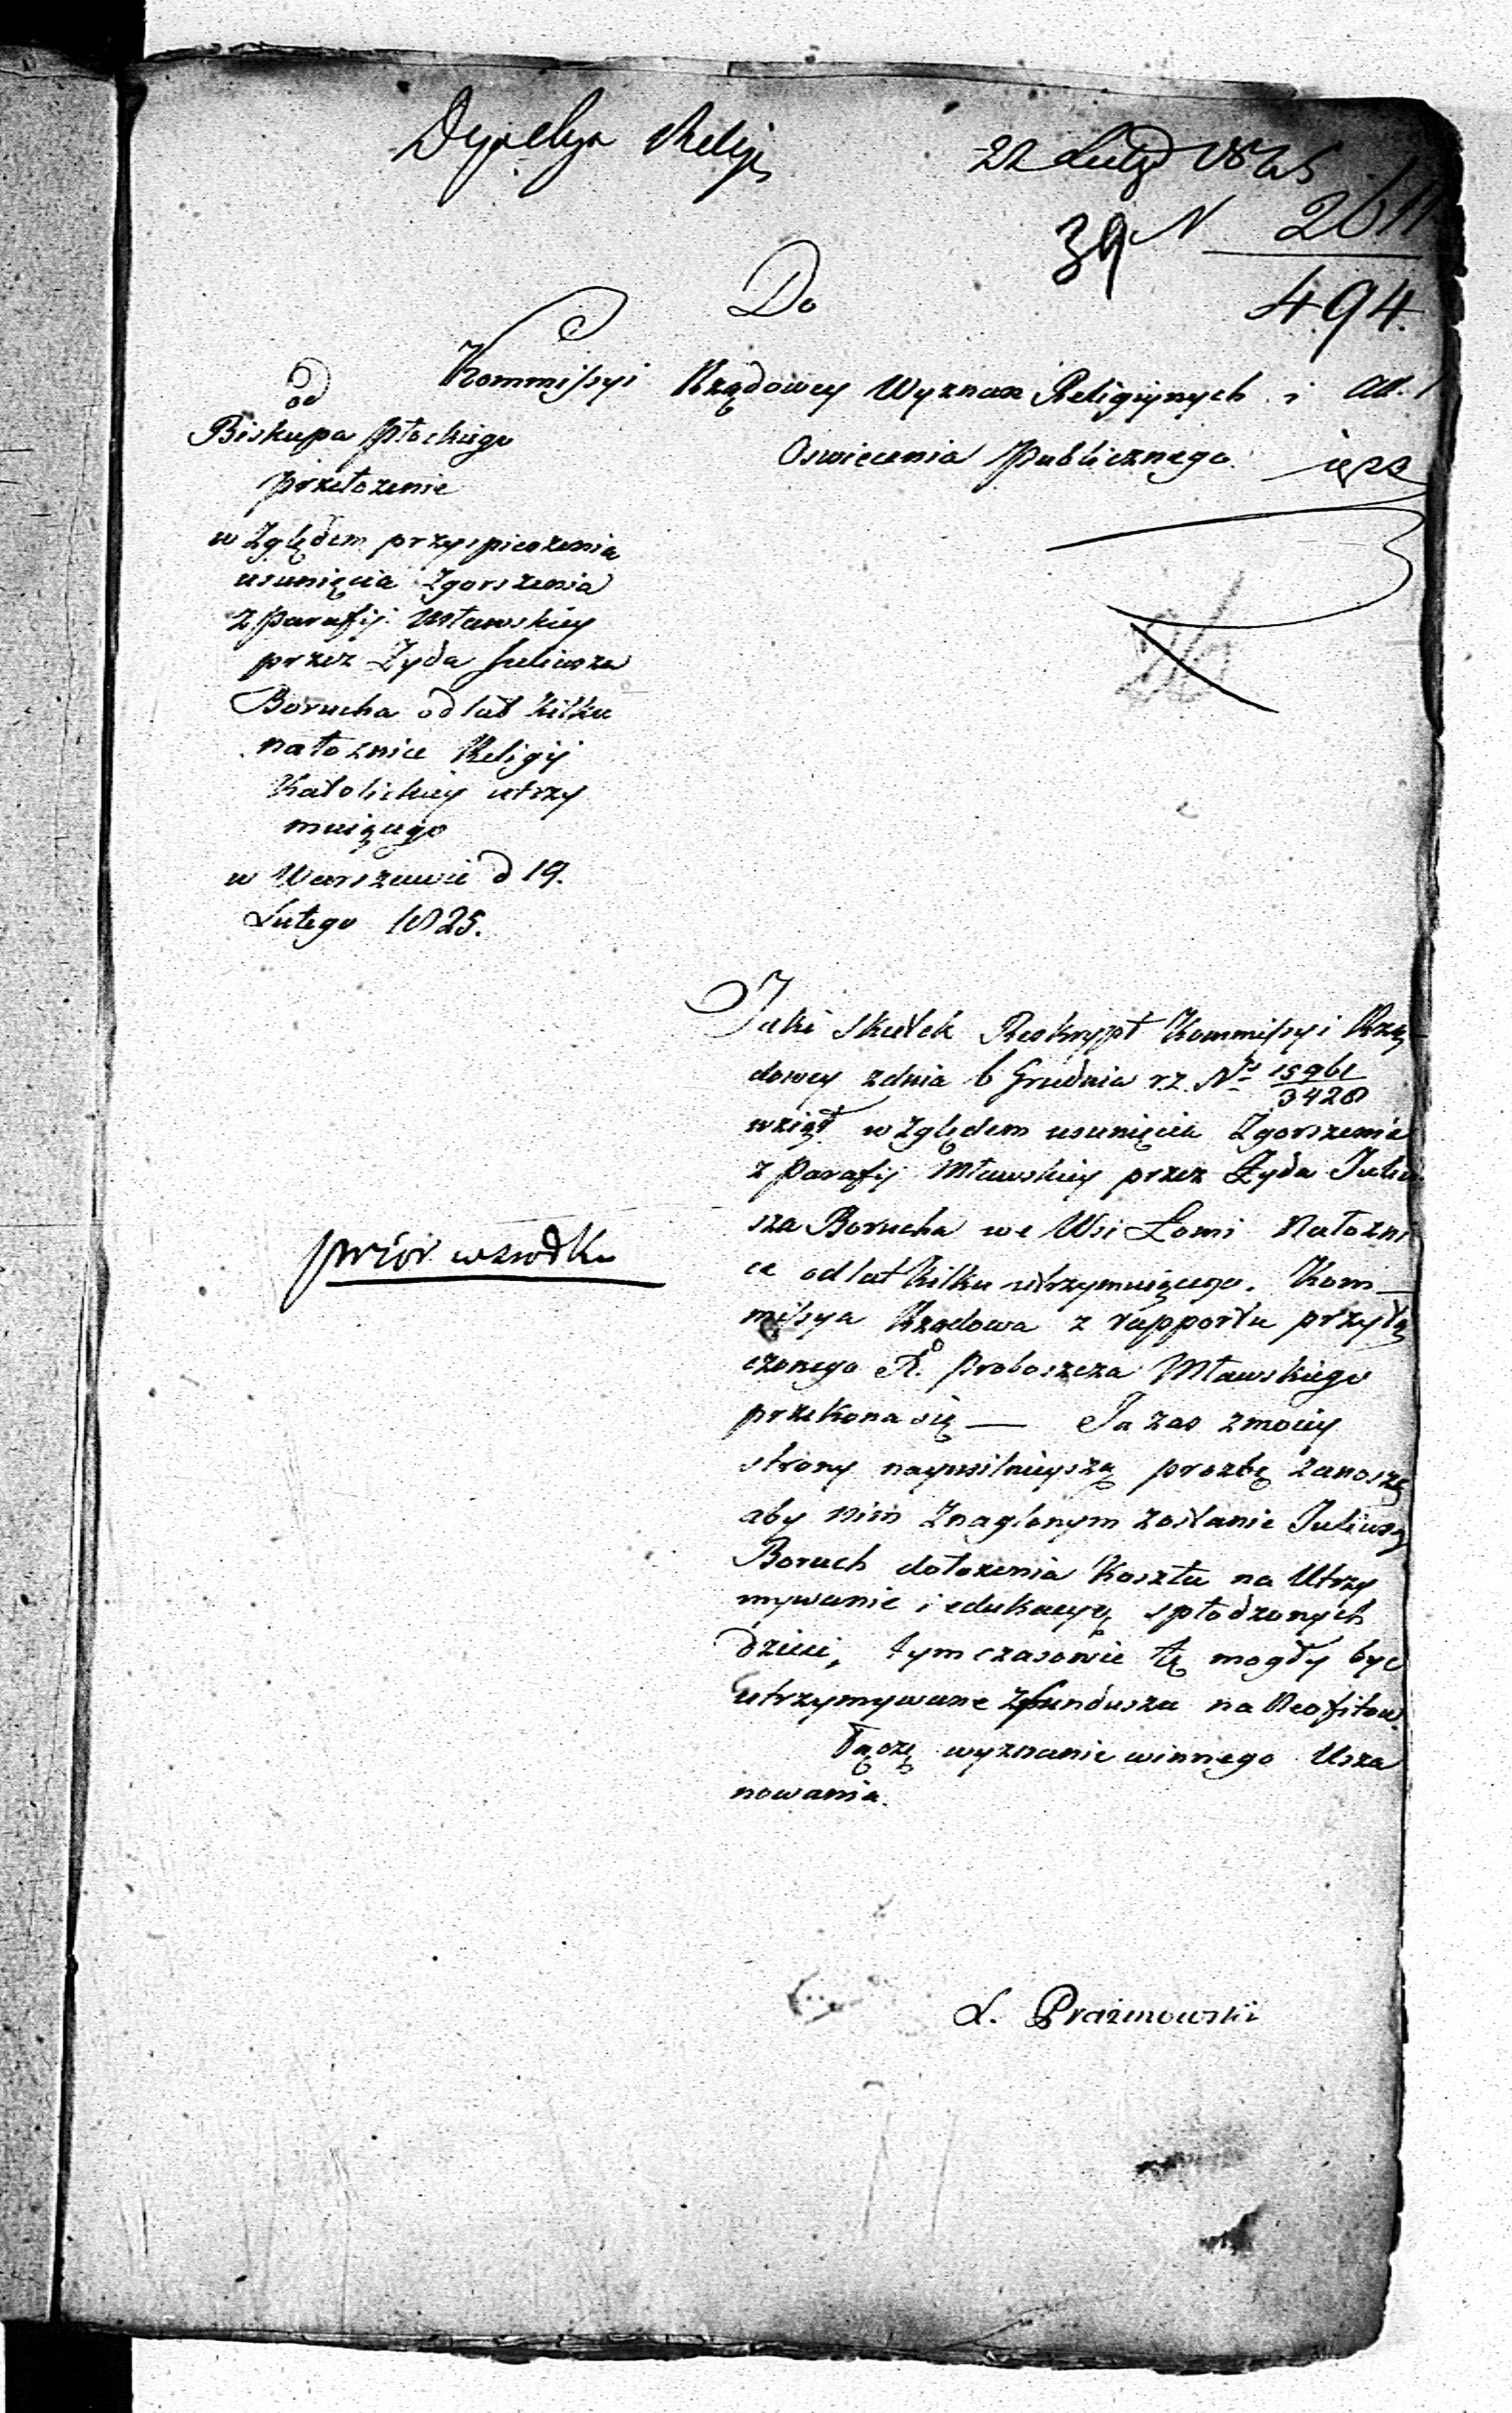 22 Lutego 1825
39 N 2611
494
Do
Kommissyi Rządowey Wyznan Religiynych i
Oswiecenia Publicznego.
od
Biskupa Płockiego
przełozenie
w Zględem przyspieszenia
usunięcia Zgorszenia
z Parafij Mławskiey
przez Żyda Juliusza
Borucha od lat kilku
nałoznice Religij
Katolickiey utrzy
muiącego
w Warszawie d 19.
Lutego 1825.
Jaki skutek Reskrypt Kommissyi Rzą
dowey zdnia 6 Grudnia r.z. No 15961
3428
wziął w Zględem usunięcia Zgorszenia
z Parafij Mławskiey przez Żyda Juliu
sza Borucha we Wsi Łomi Nałozni
ce od lat kilku utrzymuiącego. Kom
missya Rządowa z rapportu przyłą
czonego Xo Proboszcza Mławskiego
przekona się — Ja zas zmoiey
strony nayusilnieyszą prozbę zanoszę
aby nim Znaglonym zostanie Juliusz
Boruch dołozenia Kosztu na Utrzy
mywanie i edukacyą spłodzonych
dzieci, tymczasowie te mogły byc
utrzymywane zfunduszu na Neofitow.
Łączę wyznanie winnego Usza
nowania.
wsrodku
L. Prażmowski